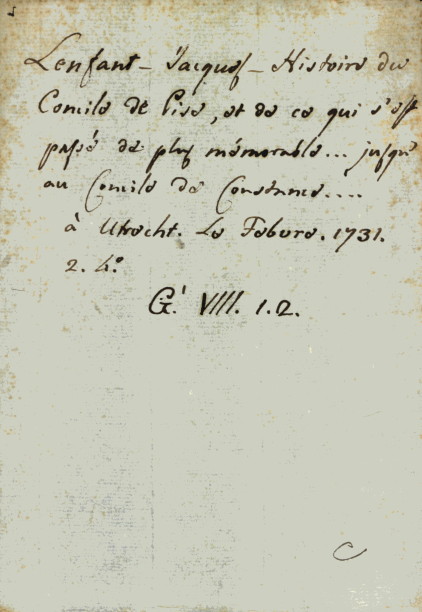 Lenfant - Jacques - Histoire du
Concile de Pise, et de ce qui s'est
passé de plus mémorable... jusqu'
au Concile de Constance....
à Utrecht. Le Febure. 1731.
2. 4°.
G.' VIII. 1.2.
C